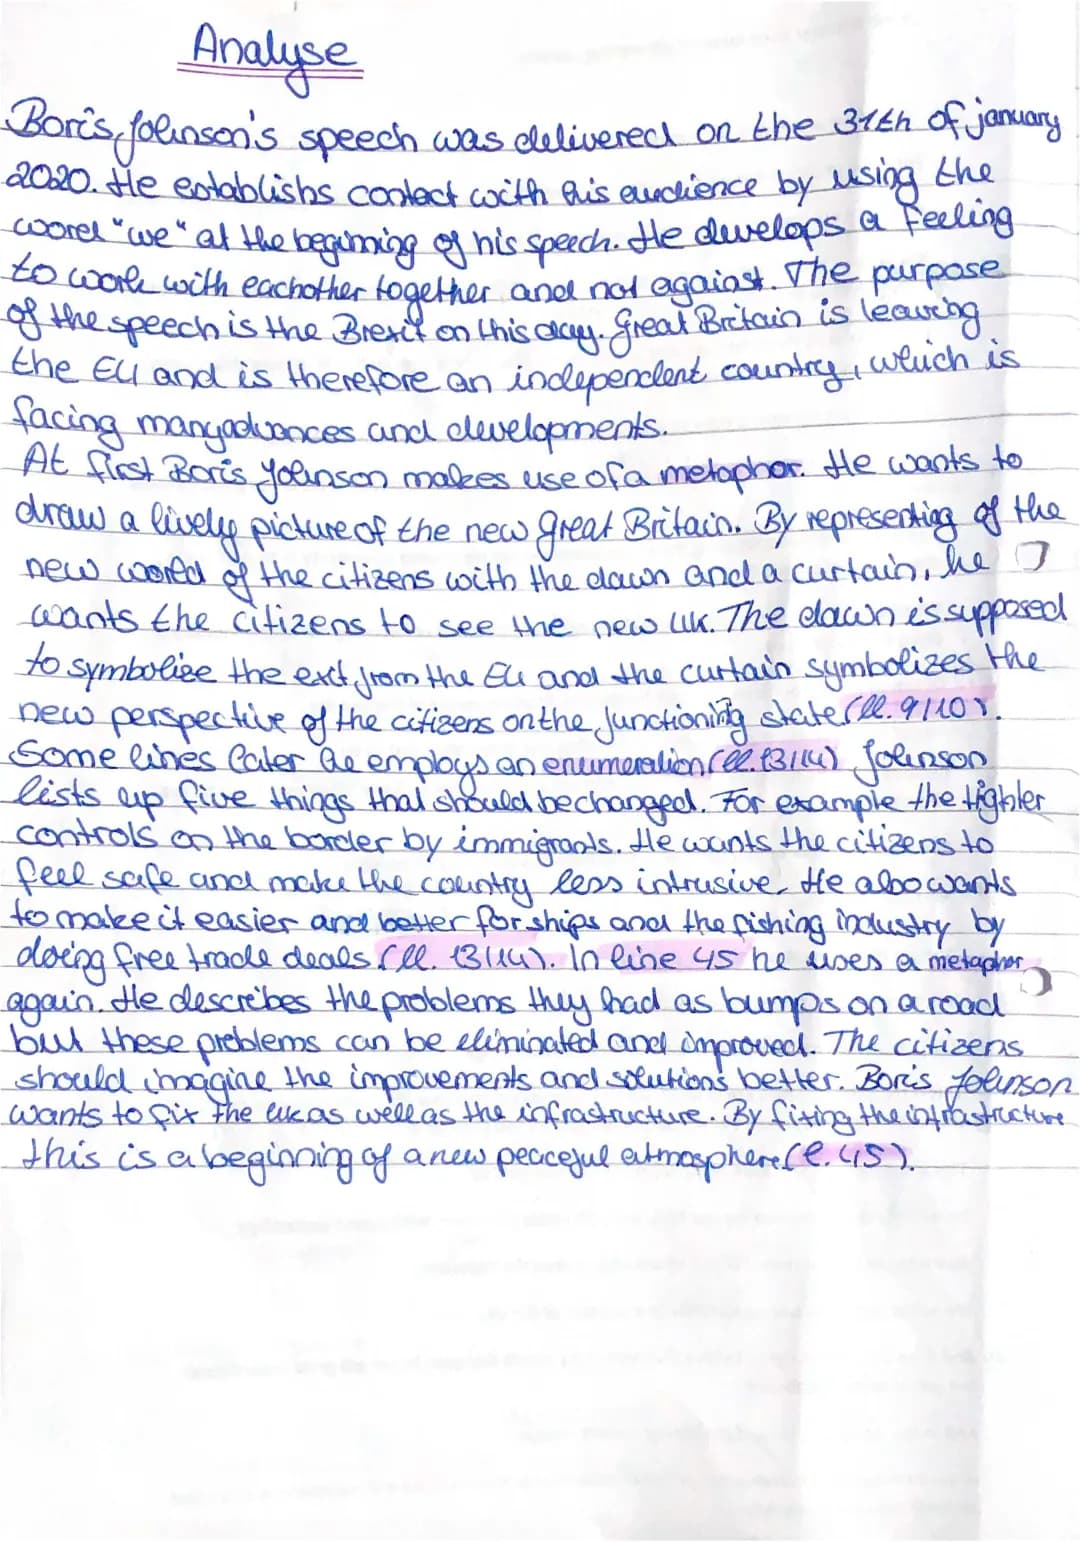 Analyse
Boris Johnson's speech was delivered on the 31th of january
2020. He establishs contact with his audience by using the
word "we" at the beginning of his speech. He develops a feeling
to work with eachother together and not against. The purpose
of the speech is the Brexit on this day. Great Britain is leaving
the EU and is therefore an independent country, which is
facing many advances and developments.
At first Boris Johnson makes use of a metaphor. He wants to
draw a lively picture of the new great Britain. By representing of the
new world of the citizens with the dawn and a curtain, he
wants the citizens to see the new UK. The dawn is supposed
to symbolize the exit from the EU and the curtain symbolizes the
new perspective of the citizens on the functioning state (ll. 9/10).
Some lines later he employs an enumeration (ll. 13/14). Johnson
lists up five things that should be changed. For example the tighter
controls on the border by immigrants. He wants the citizens to
feel safe and make the country less intrusive. He also wants
to make it easier and better for ships and the fishing industry by
doing free trade deals (ll. 13/14). In line 45 he uses a metaphor
again. He describes the problems they had as bumps on a road
but these problems can be eliminated and improved. The citizens
should imagine the improvements and solutions better. Boris Johnson
wants to fix the uk as well as the infrastructure. By fixing the infrastructure
this is a beginning of a new peaceful atmosphere (l. 45).